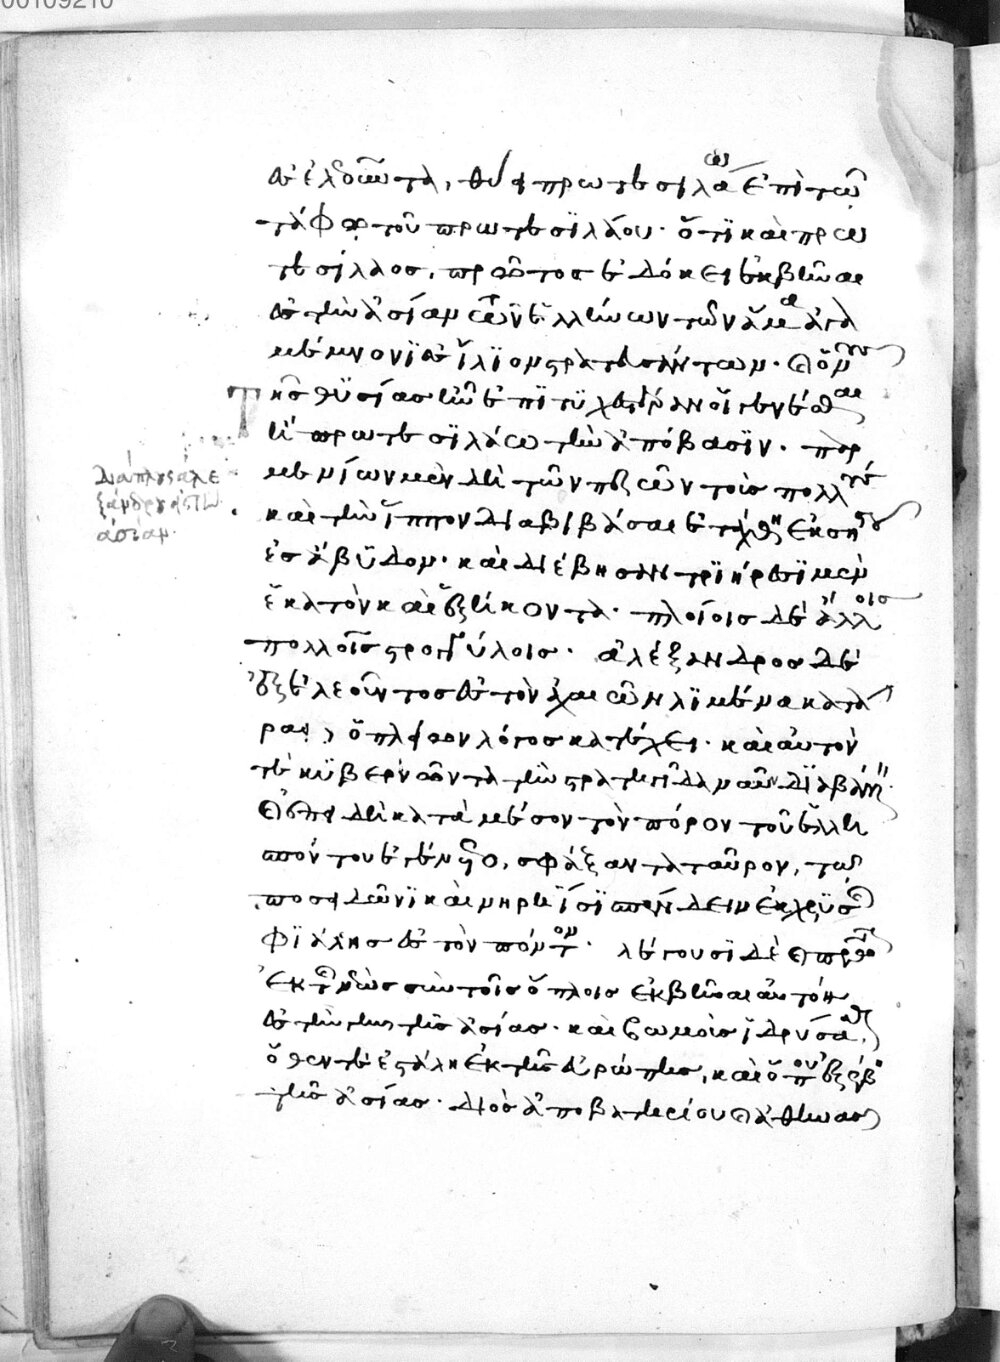 δ' ἐλθὼν τὰ, θύει πρωτεσιλάω ἐπὶ τῶ
τάφω τοῦ πρωτεσϊλάου· ὅτϊ καὶ πρω
τεσίλαος, πρῶτος ἐδόκει ἐκβῆναι
ἐς τὴν ἀσίαν τῶν ἑλλήνων τῶν ἅμα ἀγα
μέμνονϊ ἐς ἴλϊον στρατευσάντων. ὁ νοῦς
τῆς θϋσίας ἦν ἐπϊτϋχεστέραν οἷ γενέσθαι
ἢ πρωτεσϊλάω τὴν ἀπόβασϊν. παρ
μενίων μὲν δὴ τῶν πεζῶν τοὺς πολλοὺς
καὶ τὴν ἵππον διαβιβάσαι ἐτάχθη ἐκ σηστοῦ
ἐς ἄβϋδον. καὶ διέβησαν τρϊήρεσϊ μὲν
ἑκατὸν καὶ ἑξήκοντα. πλοίοις δὲ ἄλλοις
πολλοῖς στρογγύλοις. ἀλέξανδρος δὲ
ἐξ ἐλεοῦντος ἐς τὸν ἀχαιῶν λϊμένα κατᾶ
ραι, ὁ πλείων λόγος κατέχει. καὶ αὐτόν
τε κϋβερνῶντα τὴν στρατηγίδα ναῦν δϊαβάλλειν.
ἐπειδὴ κατὰ μέσον τὸν πόρον τοῦ ἑλλη
σπόντου ἐγένετο, σφάξαντα ταῦρον, τῶ
ποσειδῶνϊ καὶ νηρηΐσϊ σπένδειν ἐκ χρϋσῆς
φϊάλης ἐς τὸν πόντον. λέγουσϊ δὲ πρῶτον
ἐκ τῆς νεὼς σὺν τοῖς ὅπλοις ἐκβῆναι αὐτόν
ἐς τὴν γῆν τῆς ἀσίας. καὶ βωμοὺς ἱδρύσασθαι,
ὅθεν τε ἐστάλη ἐκ τῆς εὐρώπης, καὶ ὅπου ἐξέβη
τῆς ἀσίας. διὸς ἀποβατηρίου καὶ ἀθηνᾶς
διάπλους ἀλε
ξάνδρου εἰς τὴν
ἀσίαν.